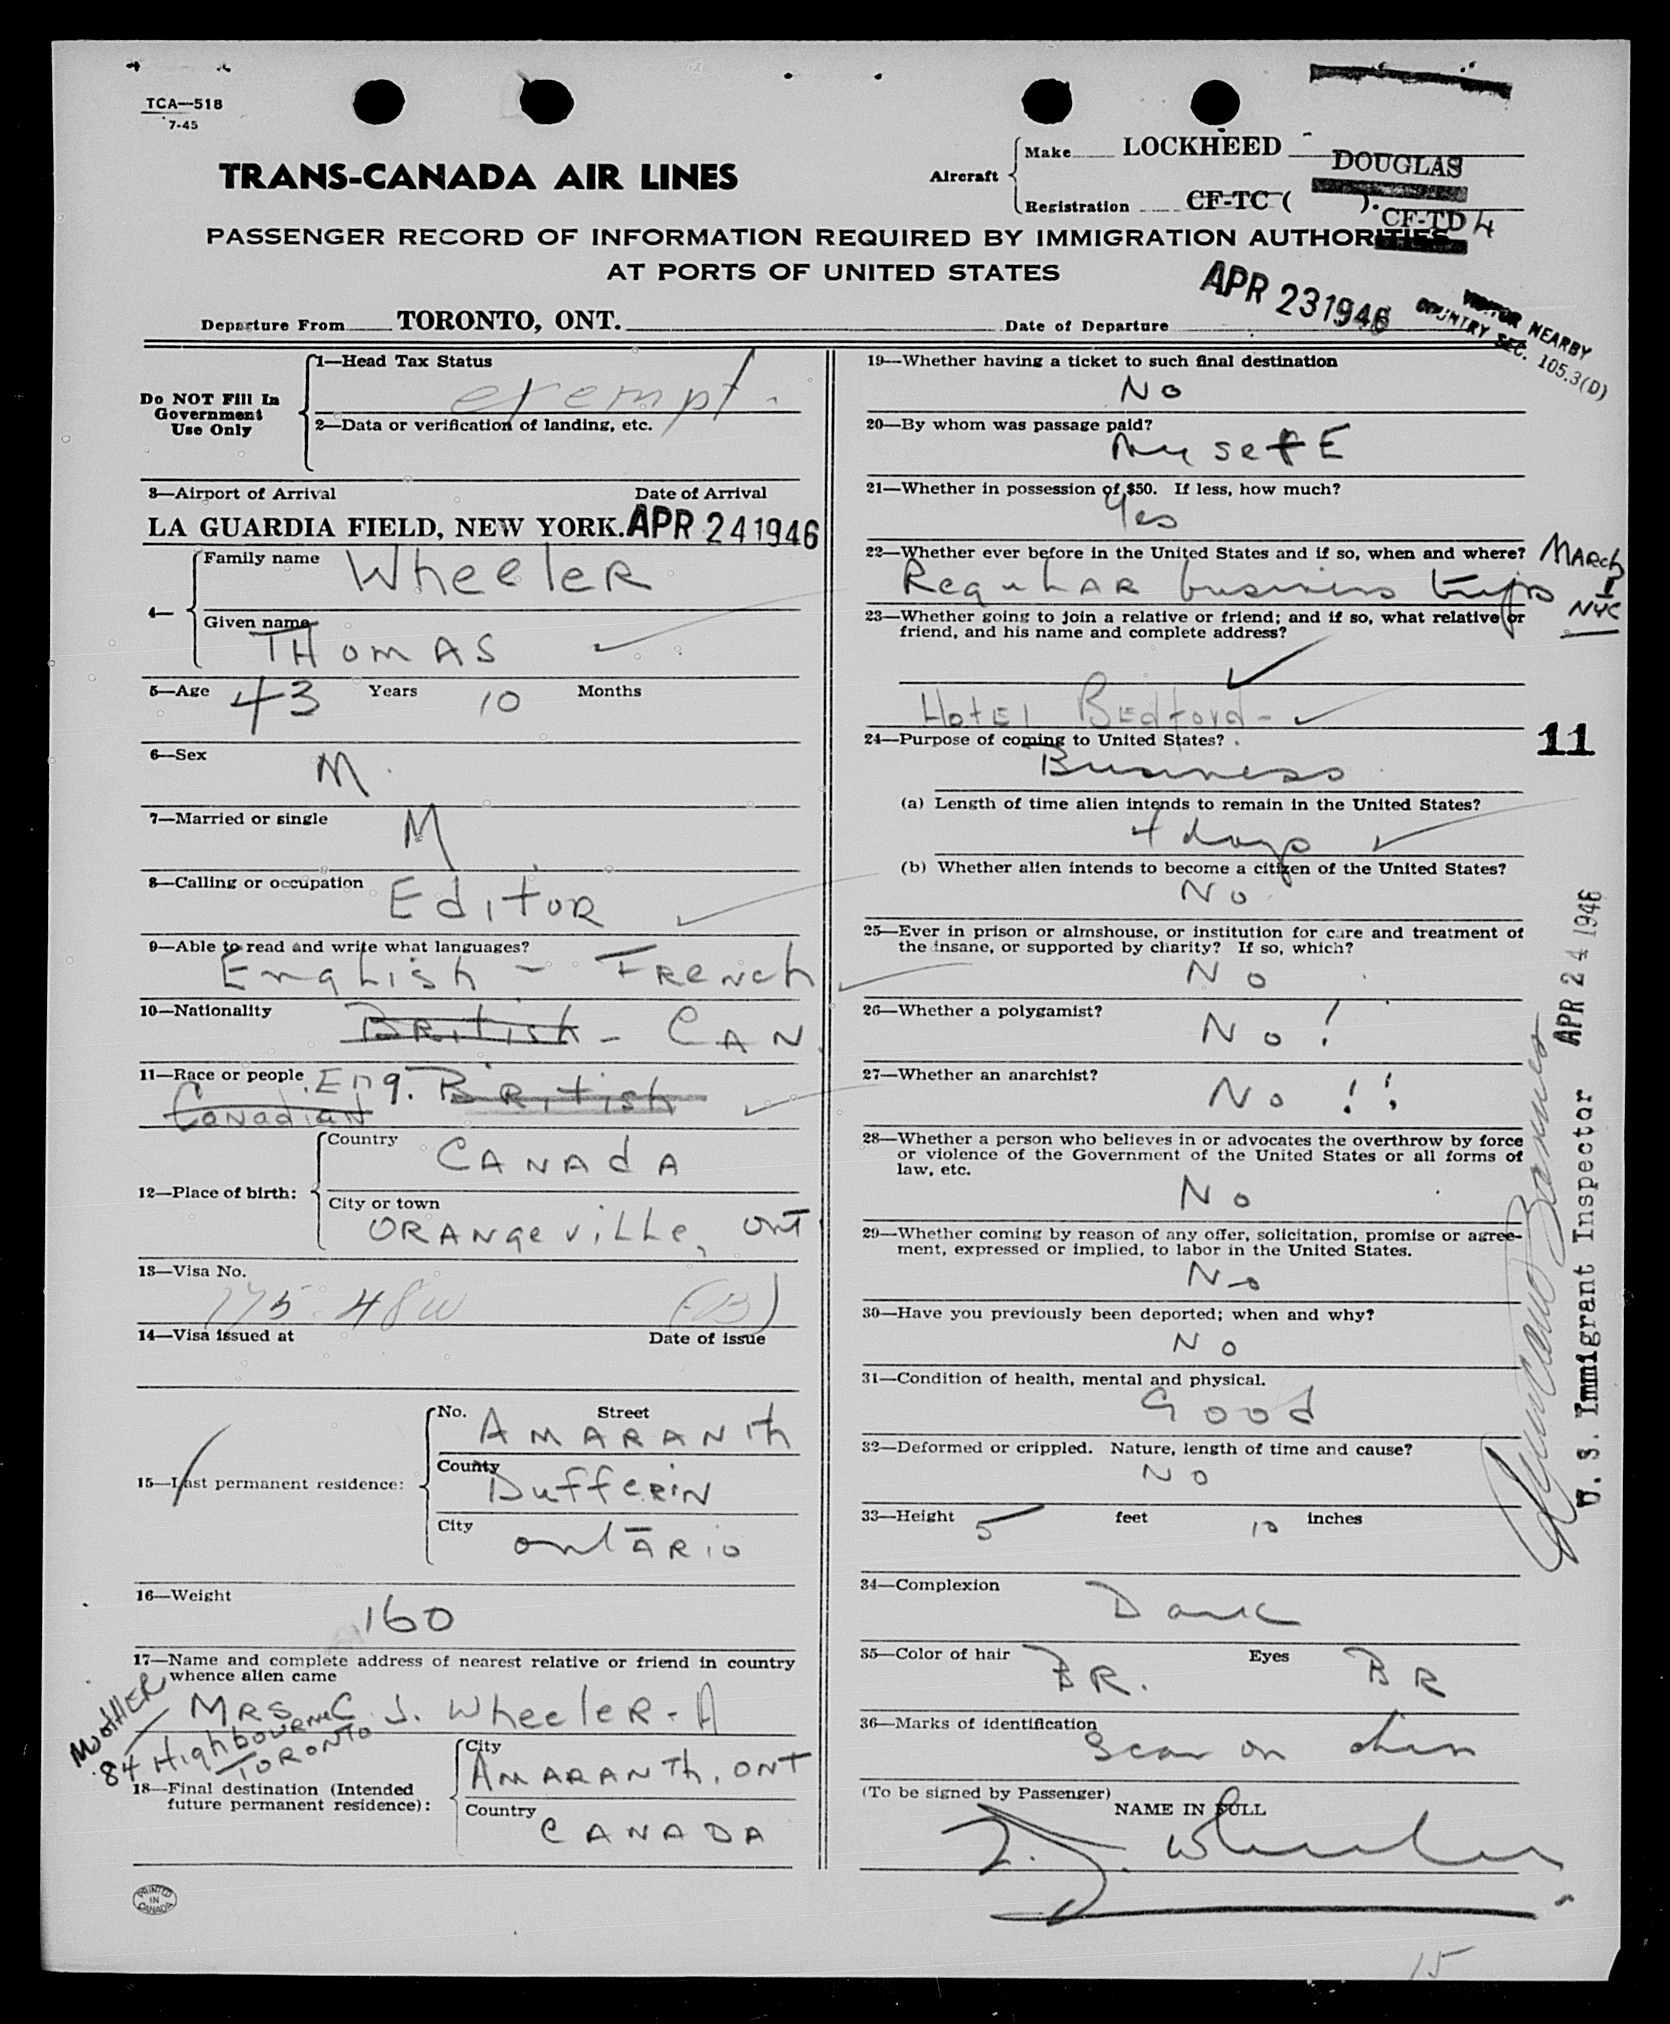 TCA—518
7-45
TRANS-CANADA AIR LINES
Aircraft
Make LOCKHEED
DOUGLAS
Registration CF-TC ( ).
CF-TD 4
PASSENGER RECORD OF INFORMATION REQUIRED BY IMMIGRATION AUTHORITIES
AT PORTS OF UNITED STATES
Departure From TORONTO, ONT.
Date of Departure APR 23 1946
VISITOR NEARBY
COUNTRY SEC. 105.3(D)
Do NOT Fill In
Government
Use Only
1—Head Tax Status
exempt.
2—Data or verification of landing, etc.
3—Airport of Arrival Date of Arrival
LA GUARDIA FIELD, NEW YORK. APR 24 1946
4—
Family name WheeleR
Given name
THomAS
5—Age 43 Years 10 Months
6—Sex M.
7—Married or single M
8—Calling or occupation EditoR
9—Able to read and write what languages?
EngLish - FRench
10—Nationality BRitish - CAN.
11—Race or people Eng. BRitish
CANAdiAN
12—Place of birth:
Country CANAdA
City or town
ORANgeviLLe, ONT
13—Visa No.
175. 48W (B)
14—Visa issued at Date of issue
15—Last permanent residence:
No. Street
AMARANth
County
DuffeRiN
City
ontARio
16—Weight
160
17—Name and complete address of nearest relative or friend in country
whence alien came
MOTHER
MRS. C. J. WheeleR - A
84 Highbourne
TORONTO
18—Final destination (Intended
future permanent residence):
City
AMARANTh, ONT
Country
CANADA
PRINTED
IN
CANADA
19—Whether having a ticket to such final destination
No
20—By whom was passage paid?
My selfE
21—Whether in possession of $50. If less, how much?
Yes
22—Whether ever before in the United States and if so, when and where?
RegulAR business trips
MARch
NYC
23—Whether going to join a relative or friend; and if so, what relative or
friend, and his name and complete address?
HotEl BEdford -
24—Purpose of coming to United States?
Business
11
(a) Length of time alien intends to remain in the United States?
4 days
(b) Whether alien intends to become a citizen of the United States?
No
25—Ever in prison or almshouse, or institution for care and treatment of
the insane, or supported by charity? If so, which?
No
26—Whether a polygamist?
No!
27—Whether an anarchist?
No !!
28—Whether a person who believes in or advocates the overthrow by force
or violence of the Government of the United States or all forms of
law, etc.
No
29—Whether coming by reason of any offer, solicitation, promise or agree-
ment, expressed or implied, to labor in the United States.
No
30—Have you previously been deported; when and why?
No
31—Condition of health, mental and physical.
Good
32—Deformed or crippled. Nature, length of time and cause?
No
33—Height 5 feet 10 inches
34—Complexion
Dark
35—Color of hair BR. Eyes BR
36—Marks of identification
Scar on chin
(To be signed by Passenger)
NAME IN FULL
T. J. Wheeler.
U. S. Immigrant Inspector APR 24 1946
15